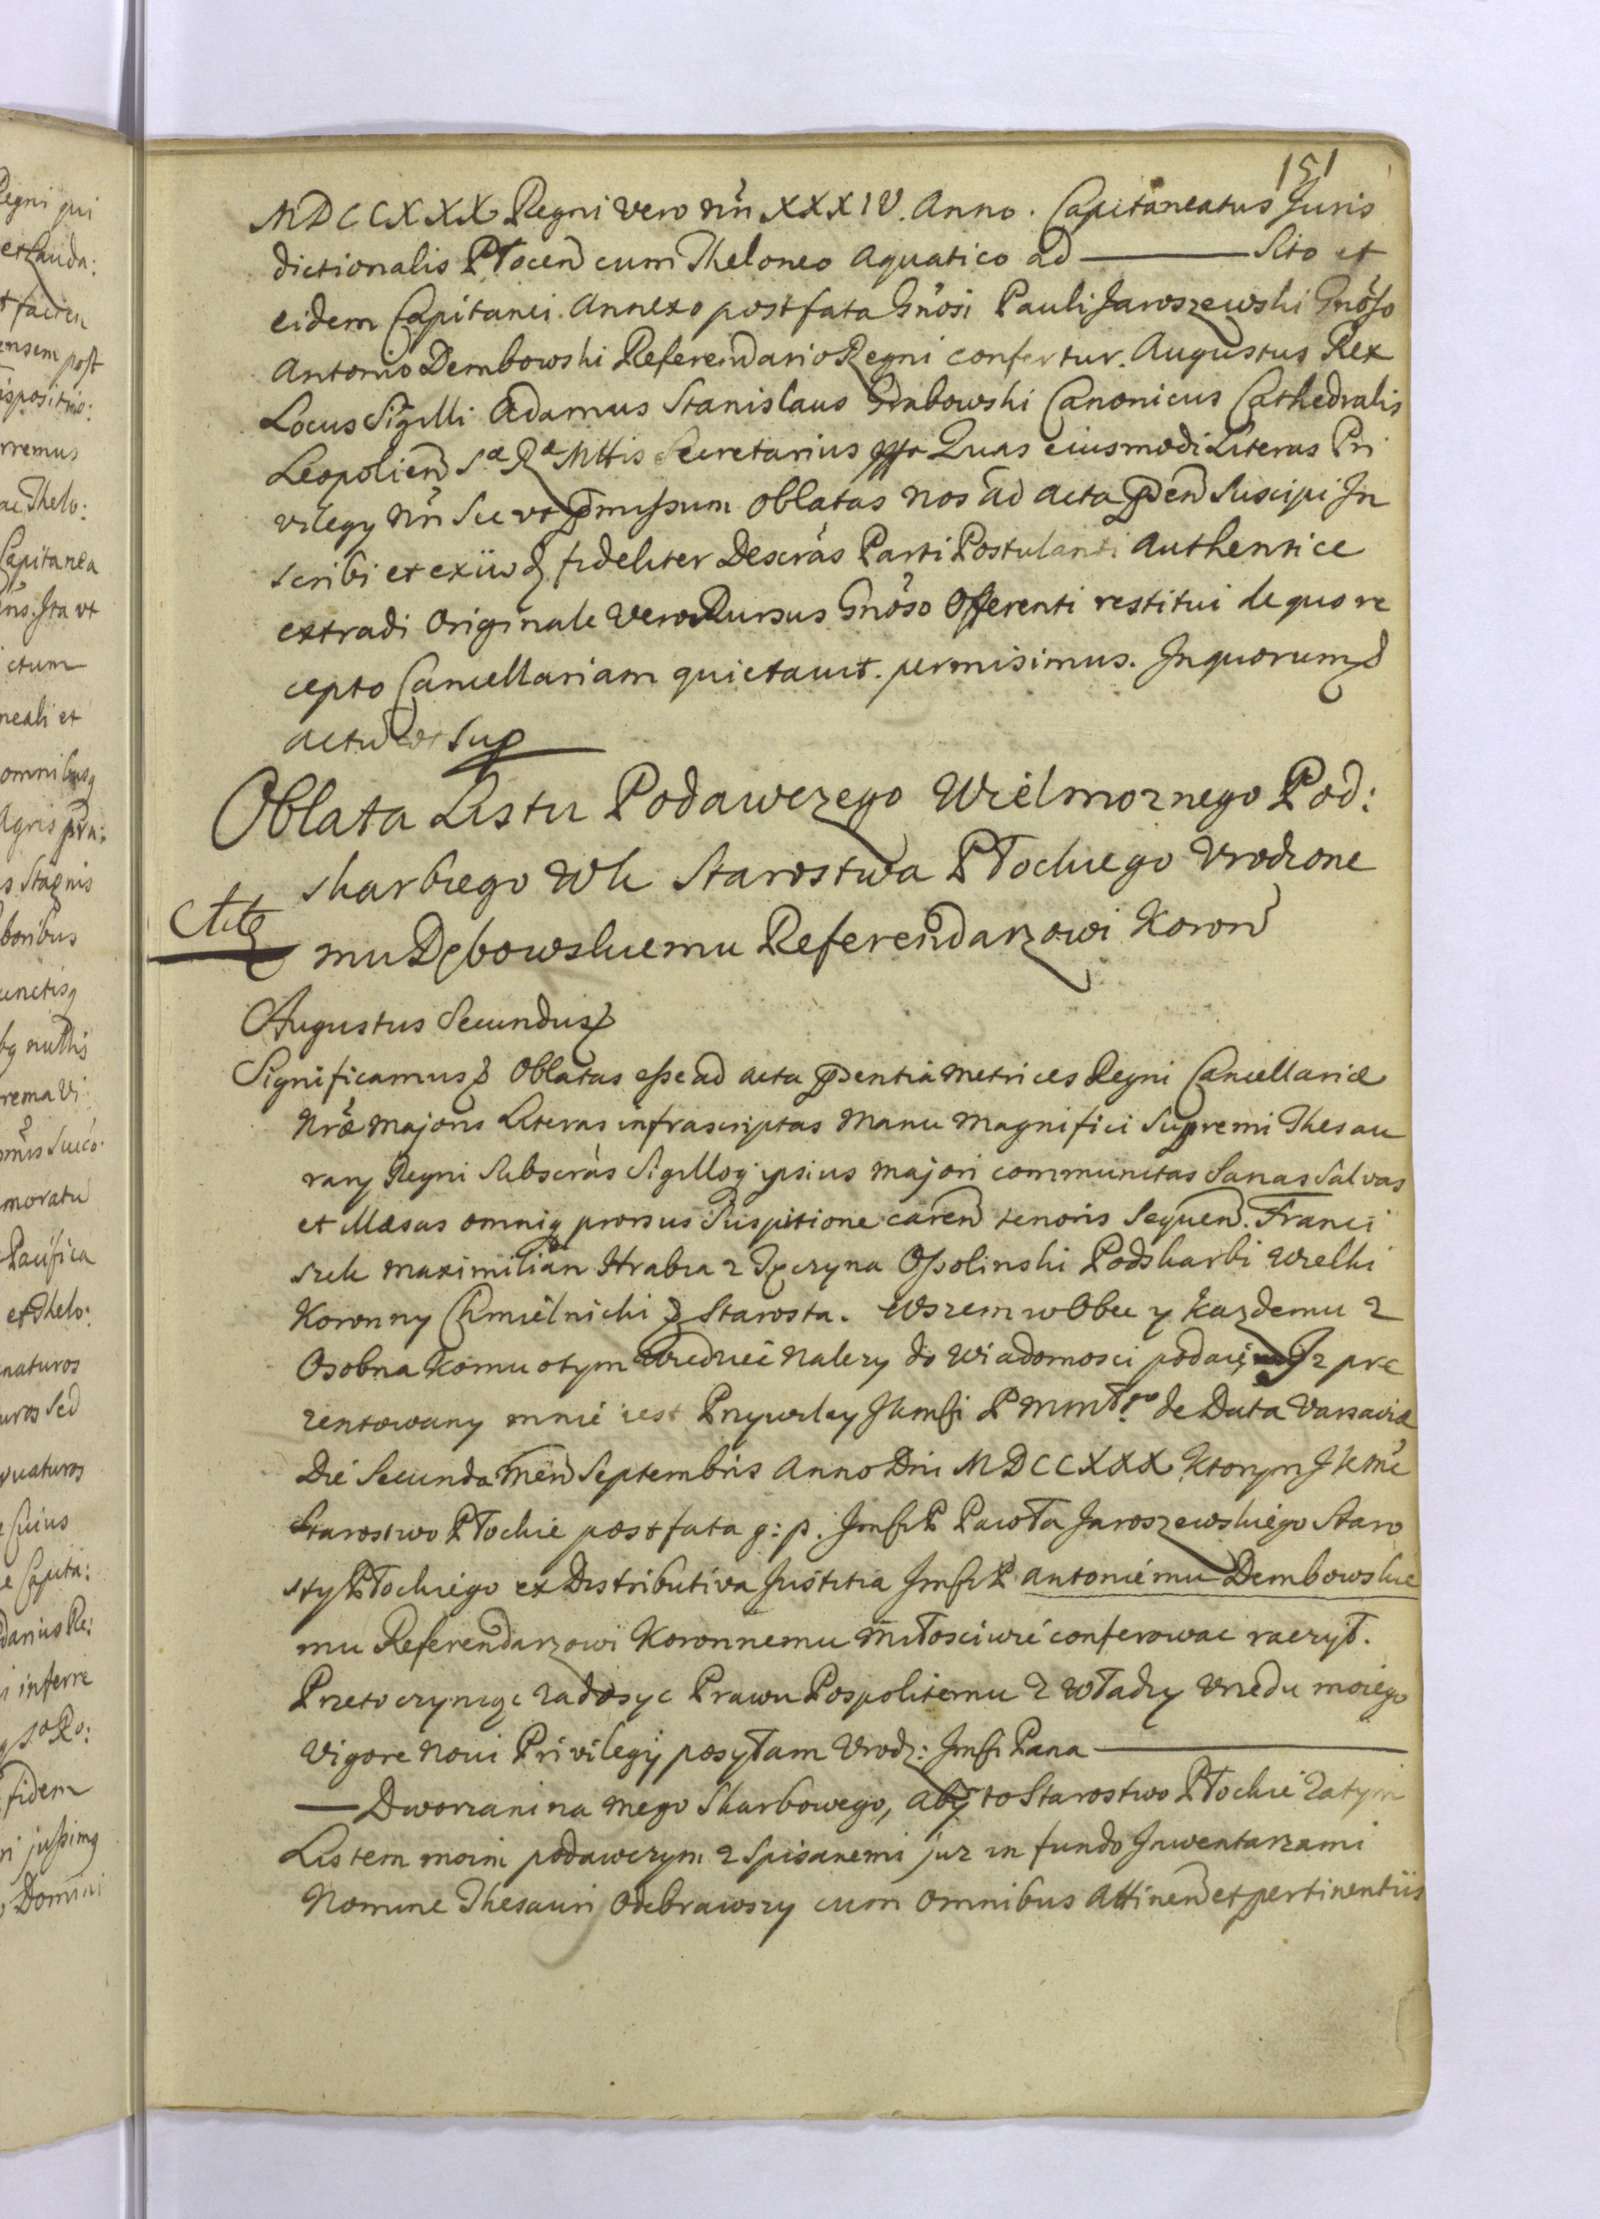 151
MDCCXXX Regni vero Nri XXXIV. Anno. Capitaneatus Juris
dictionalis Płocen cum Theloneo Aquatico ad ——— Sito et
eidem Capitanei. Annexo post fata Gnosi Pauli Jaroszewski Gnoso
Antonio Dembowski Referendario Regni confertur. Augustus Rex
Locus Sigilli Adamus Stanislaus Grabowski Canonicus Cathedralis
Leopolien Sæ Ræ Mttis Secretarius Quas eiusmodi Literas Pri
vilegy Nri Sic ut pmissum oblatas nos ad acta pden Suscipi In
scribi et exiis fideliter Descras Parti Postulanti Authentice
extradi Originale vero Rursus Gnoso Offerenti restitui de quo re
cepto Cancellariam quietavit. permisimus. In quorum
actu ut Sup
Oblata Listu Podawczego Wielmoznego Pod:
skarbiego Wk Starostwa Płockiego Vrodzone
mu Dębowskiemu Referendarzowi Koron
Augustus Secundus
Significamus Oblatas esse ad acta pdentia Metrices Regni Cancellariæ
Nræ Majoris Literas infrascriptas Manu Magnifici Supremi Thesau
rary Regni Subscras Sigilloq ipsius majori communitas Sanas Salvas
et illæsas omniq prorsus Suspitione caren tenoris Sequen. Franci
szek Maximilian Hrabia z Tęczyna Ossolinski Podskarbi Wielki
Koronny Chmielnicki Starosta. Wszem wobec y kazdemu z
Osobna komu otym Wiedziec nalezy do Wiadomosci podaię Iz pre
zentowany mnie iest Przywiley JKmsci P M mtgo de Data Varsaviæ
Die Secunda Men Septembris Anno Dni MDCCXXX Ktorym JKmc
Starostwo Płockie post fata g: p. Jmsci P Pawła Jaroszewskiego Staro
sty Płockiego ex Distributiva Justitia Jmsci P Antoniemu Dembowskie
mu Referendarzowi Koronnemu Miłosciwie conferowac raczył.
Przeto czyniąc zadosyc Prawu Pospolitemu z władzy Vrzedu moiego
Vigore Noui Privilegij posyłam Vrodz: Jmsci Pana ———
— Dworzanina mego Skarbowego, aby to Starostwo Płockie zatym
Listem moim podawczym z Spisanemi juz in fundo Inwentarzami
Nomine Thesauri Odebrawszy cum omnibus Attinen et pertinentiis